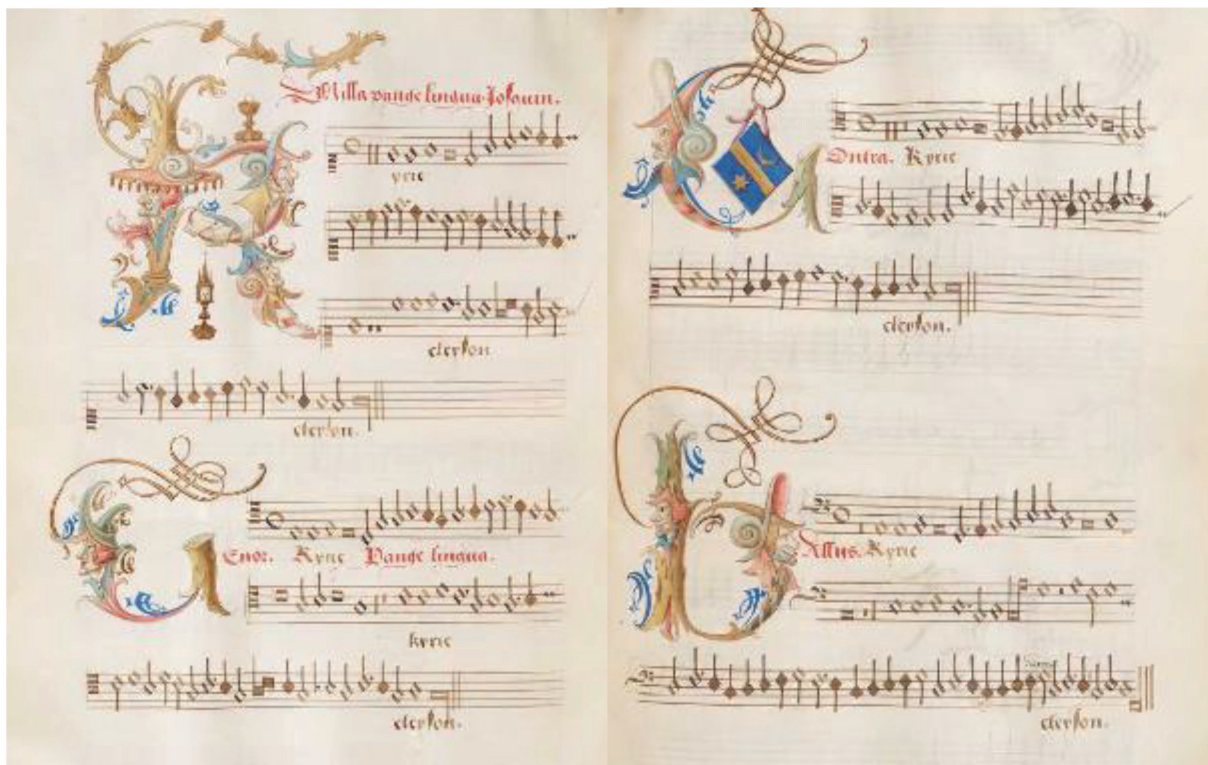 Missa pange lingua. Josquin.
Kyrie
eleyson
eleyson.
Tenor. Kyrie Pange lingua.
kyrie
eleyson.
Contra. Kyrie
eleyson.
Bassus. Kyrie
eleyson.